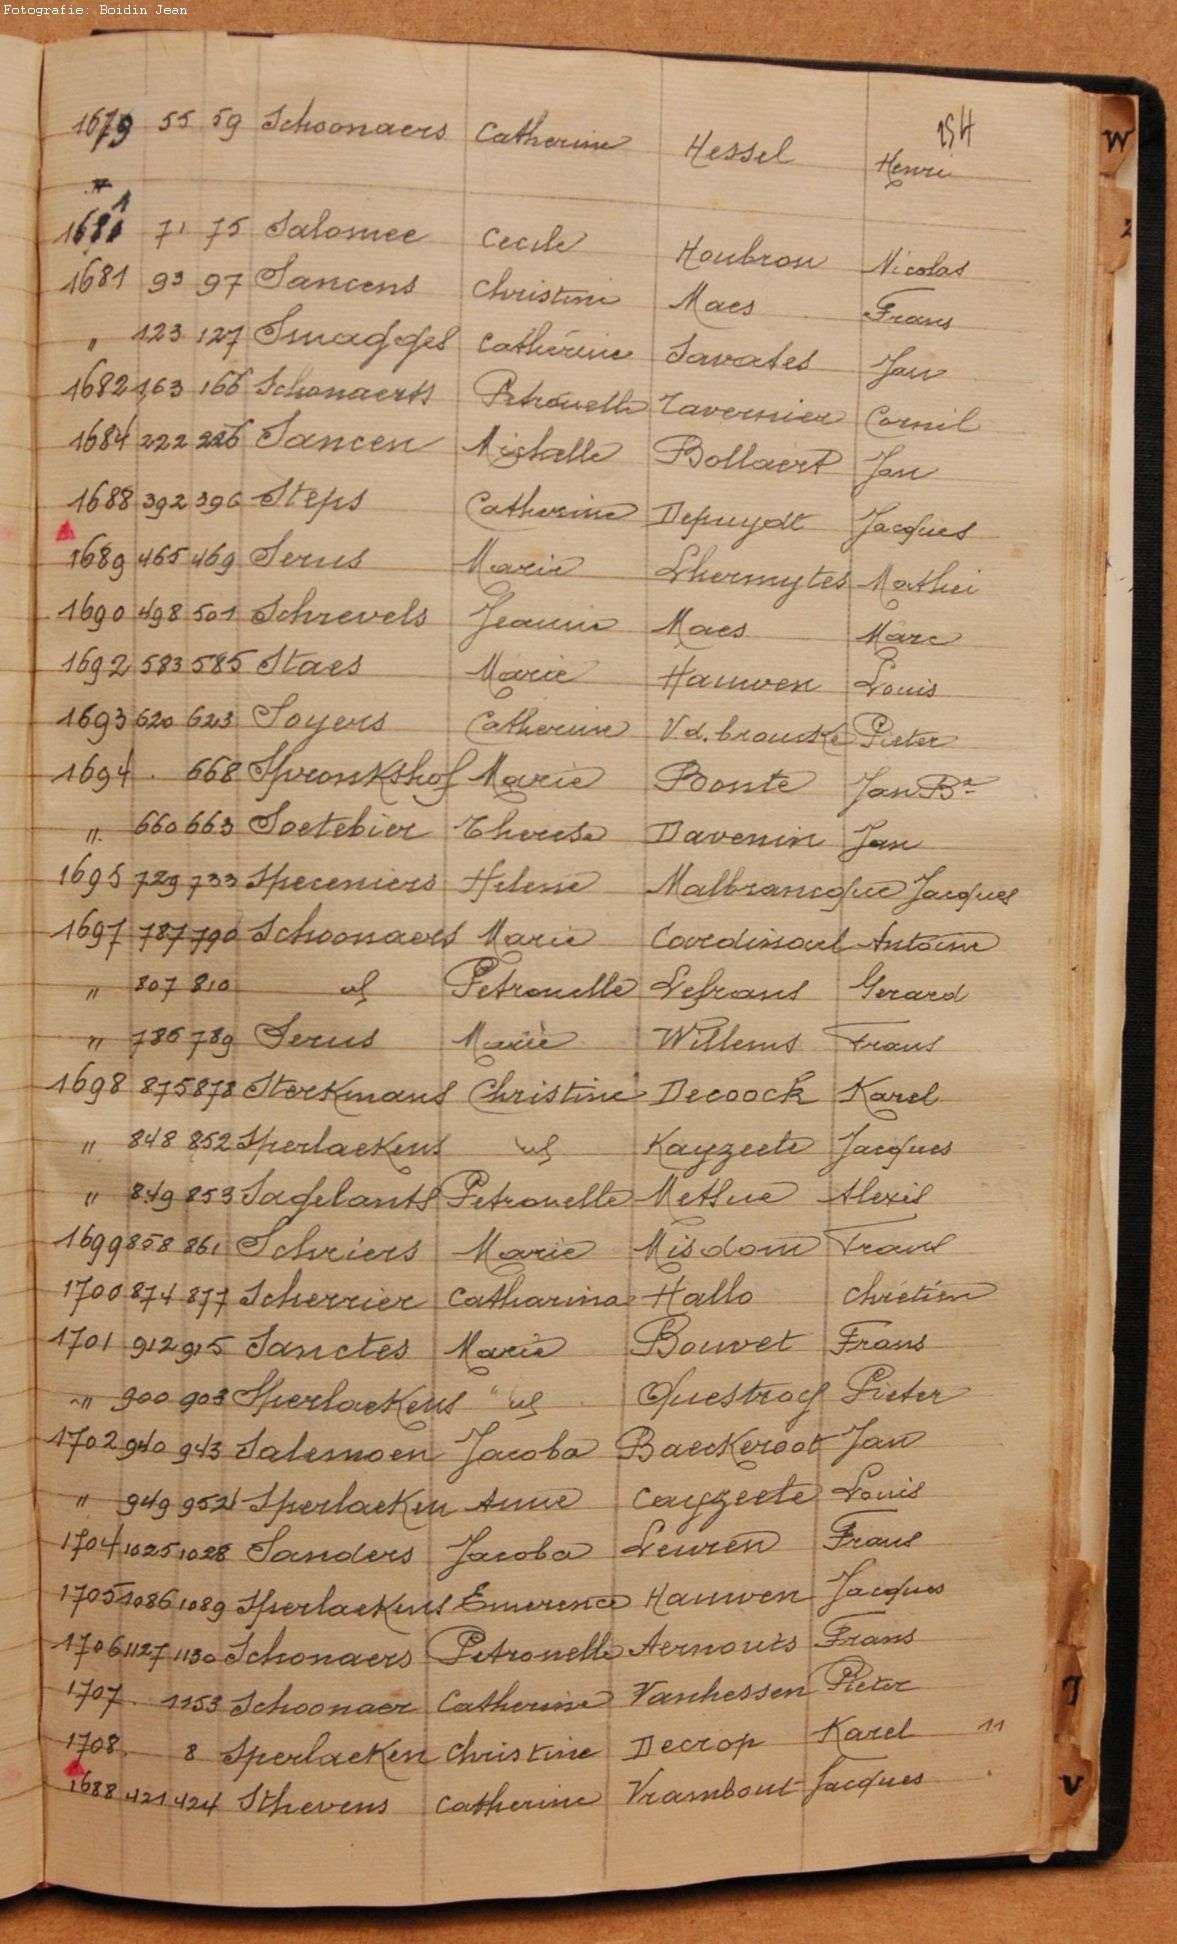 Fotografie: Boidin Jean
154
W
1679 55 59 Schoonaers Catherine Hessel Henri
1681 71 75 Salomee Cecile Houbron Nicolas
1681 93 97 Sancens Christine Maes Frans
" 123 127 Smagges Catherine Savates Jan
1682 163 166 Schonaerts Petronelle Tavernier Cornil
1684 222 226 Sancen Michelle Bollaert Jan
1688 392 396 Steps Catherine Depuydt Jacques
1689 465 469 Serus Marie Lhermytes Mathei
1690 498 501 Schrevels Jeanne Maes Marc
1692 583 585 Staes Marie Hauwen Louis
1693 620 623 Soyers Catherine V.d. broucke Pieter
1694 . 668 Spronkshof Marie Bonte Jan Bte
" 660 663 Soetebier Therese Davenin Jan
1695 729 733 Speceniers Helene Malbrancque Jacques
1697 787 790 Schoonaers Marie Cardinael Antoine
" 807 810 " Petronelle Lefrans Gerard
" 786 789 Serus Marie Willems Frans
1698 875 878 Sterkmans Christine Decoock Karel
" 848 852 Sperlaekens " Kayzeete Jacques
" 849 853 Sagelants Petronelle Methue Alexis
1699 858 861 Schriers Marie Misdom Frans
1700 874 877 Scherrier Catharina Hallo Chrétien
1701 912 915 Sanctes Marie Bouvet Frans
" 900 903 Sperlaekens " Questroy Pieter
1702 940 943 Salemoen Jacoba Baeckeroot Jan
" 949 952 Sperlaeken Anne Cayzeete Louis
1704 1025 1028 Sanders Jacoba Leuren Frans
1705 1086 1089 Sperlaekens Emerence Hauwen Jacques
1706 1127 1130 Schonaers Petronelle Aernouts Frans
1707 . 1153 Schoonaer Catherine Vanhessen Pieter
1708 . 8 Sperlaeken Christine Decrop Karel 11
1688 421 424 Sthevens Catherine Vrambout Jacques
V